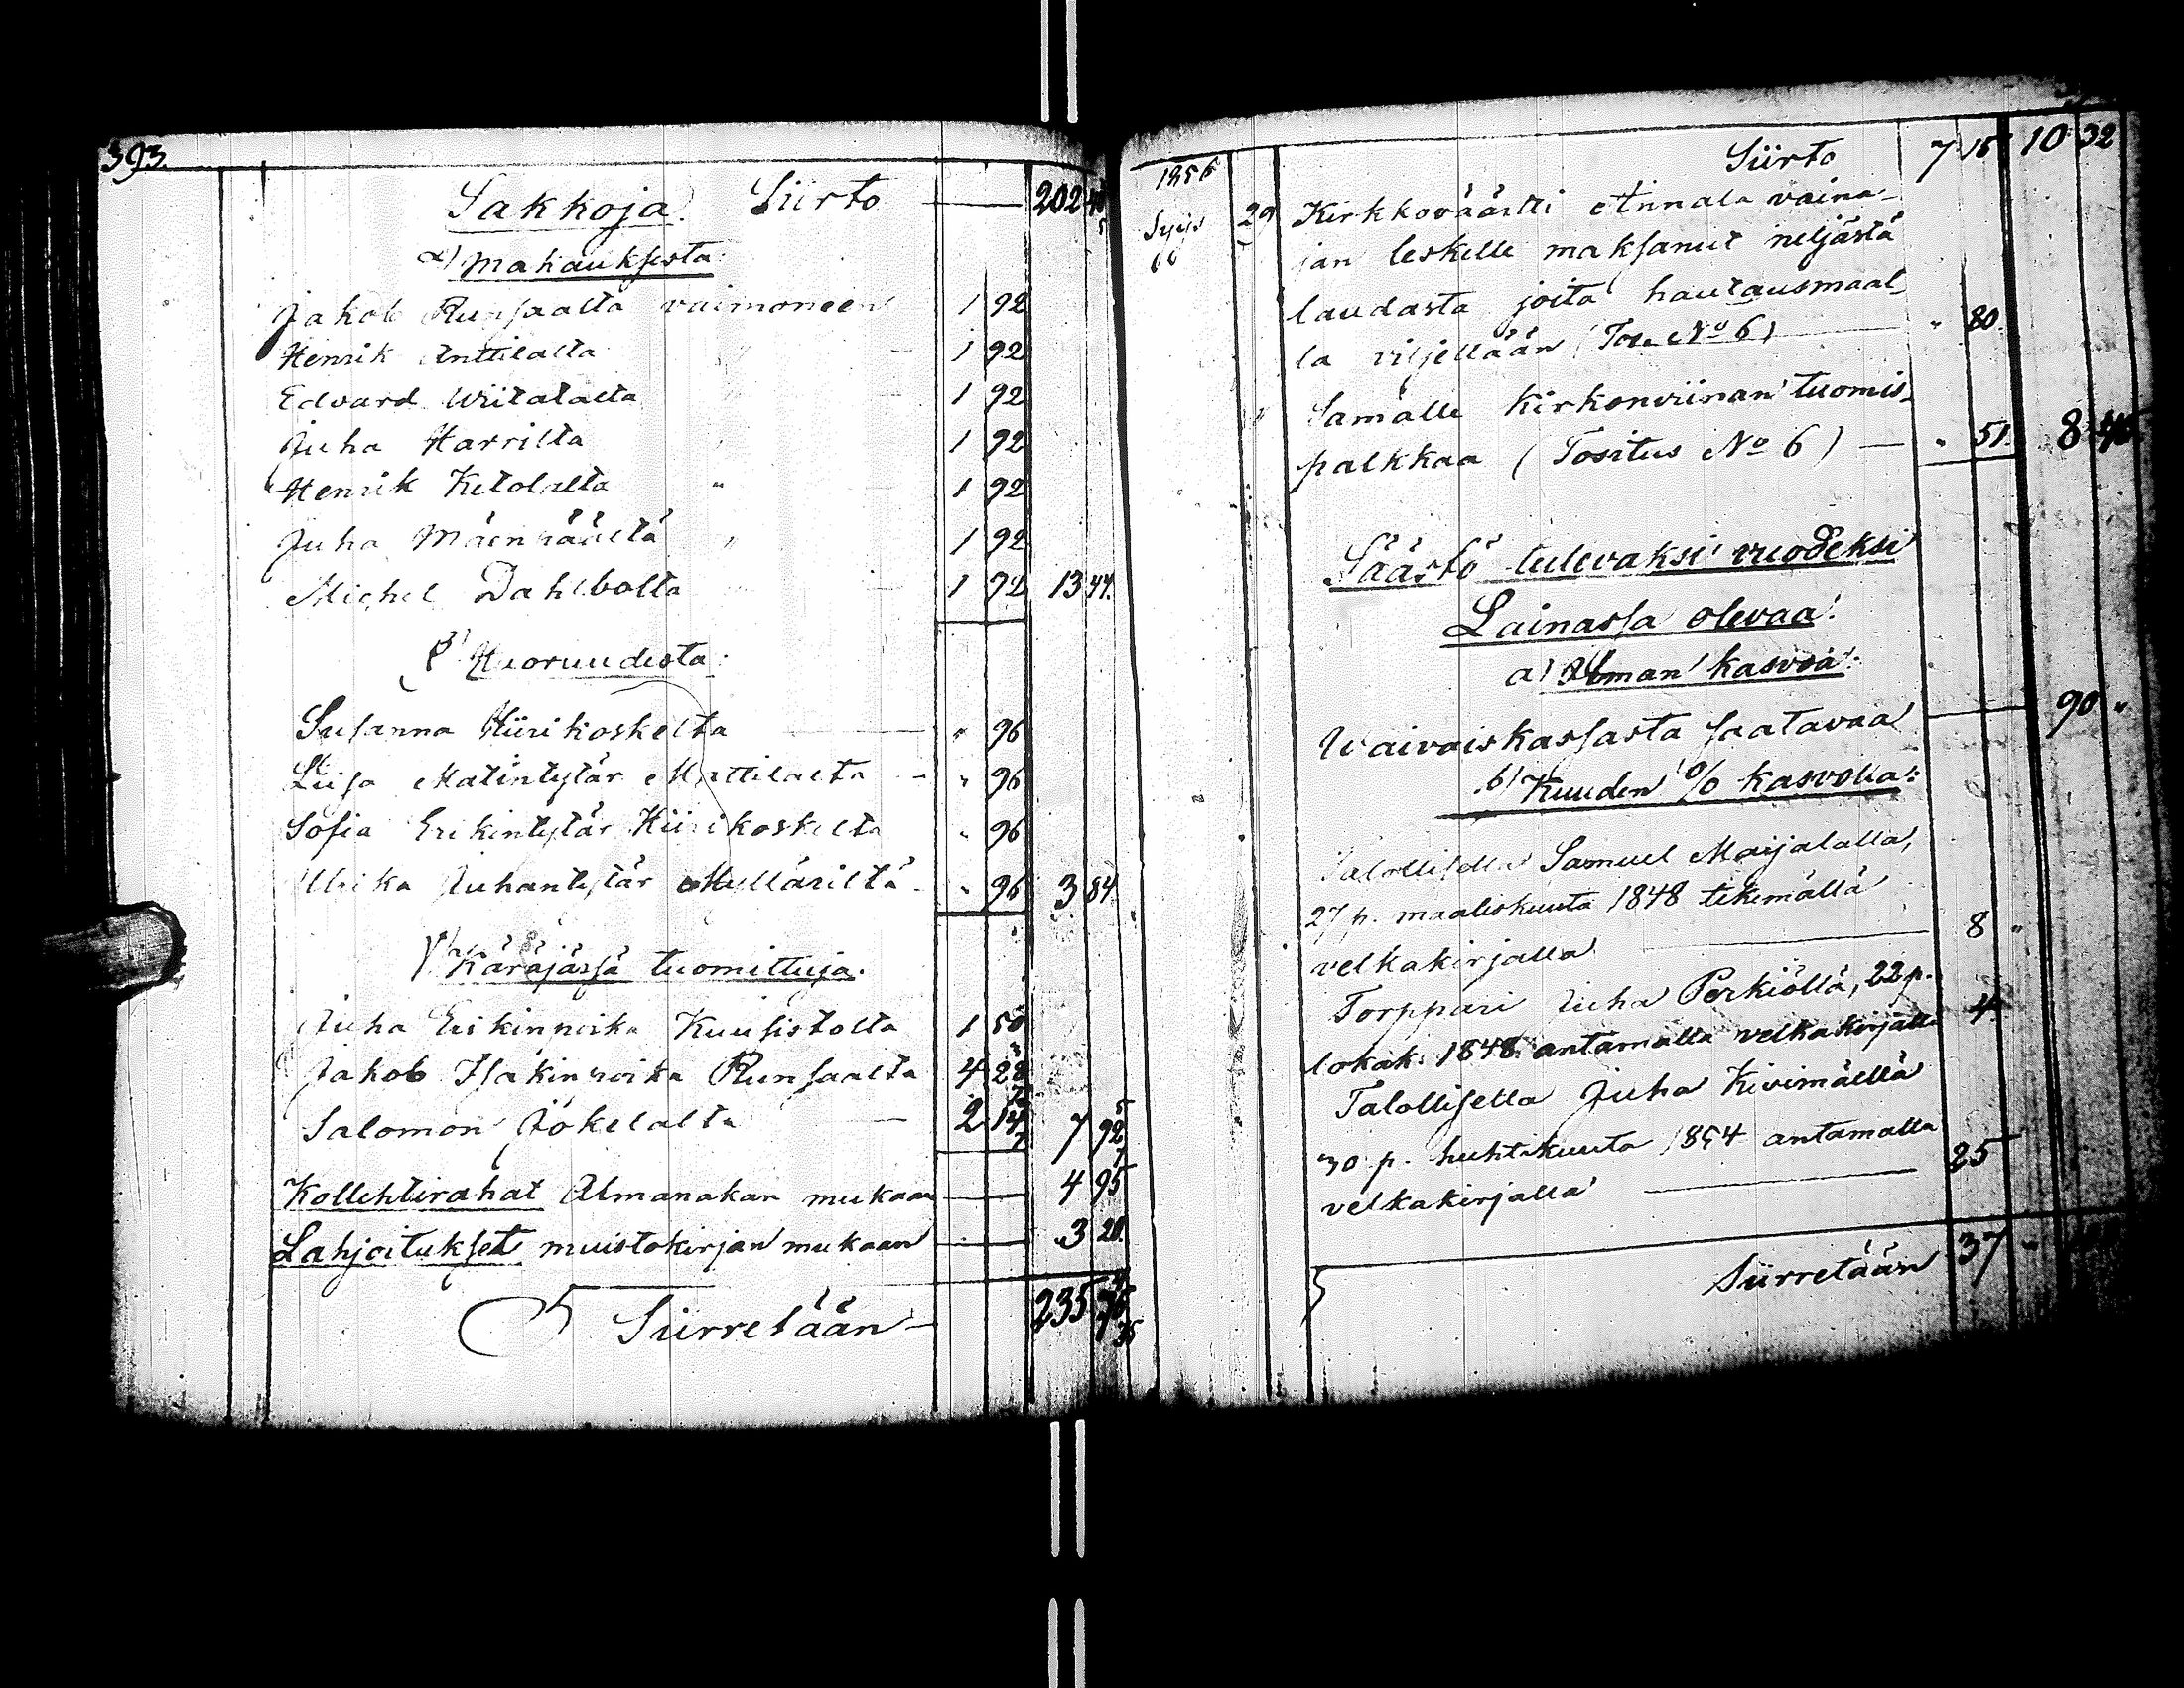 393.
Sakkoja. Siirto — 202 40
α) Makauksesta:
Jakob Runsaalta vaimoneen 1 92
Henrik Anttilalta " 1 92
Edvard Wiitalalta " 1 92
Juha Harrilta " 1 92
Henrik Ketolalta " 1 92
Juha " 1 92
Michel Dahlbolta 1 92 13 44.
β) Huoruudesta:
Susanna Hiirikoskelta " 96
Liisa Matintytär Mattilalta " 96
Sofia Erikintytär Hiirikoskelta " 96
Ulrika Juhantytär Mylläriltä " 96 3 84.
γ) Käräjässä tuomittuja.
Juha Erikinpoika Kuusistolta 1 50
Jakob Isakinpoika Runsaalta 4 28
Salomon Jokelalta — 2 14 7 92
Kollehtirahat Almanakan mukaan — 4 95
Lahjoitukset muistokirjan mukaan — 3 20.
Siirretään — 235 76
Siirto 7 15 10 32
1856
Syys 29 Kirkkoväärti Annala vaina-
jan leskelle maksanut neljästä
laudasta joita hautausmaal-
la viljellään (Tos. No 6) — " 80.
" Samalle kirkonviinan tuomis-
palkkaa (Tositus No 6) — " 51. 8 46
Säästö tulevaksi vuodeksi
Lainassa olevaa:
a) Ilman kasvoa:
Waivaiskassasta saatavaa — 90 "
b) Kuuden % kasvolla:
Talollisella Samuel Maijalalla,
27 p. maaliskuuta 1848 tekemällä
velkakirjalla — 8 "
Torppari Juha Perkiöllä, 22 p.
lokak. 1848 antamalla velkakirjalla 4.
Talollisella Juha Kivimäellä
30 p. huhtikuuta 1854 antamalla
velkakirjalla — 25
Siirretään 37 "